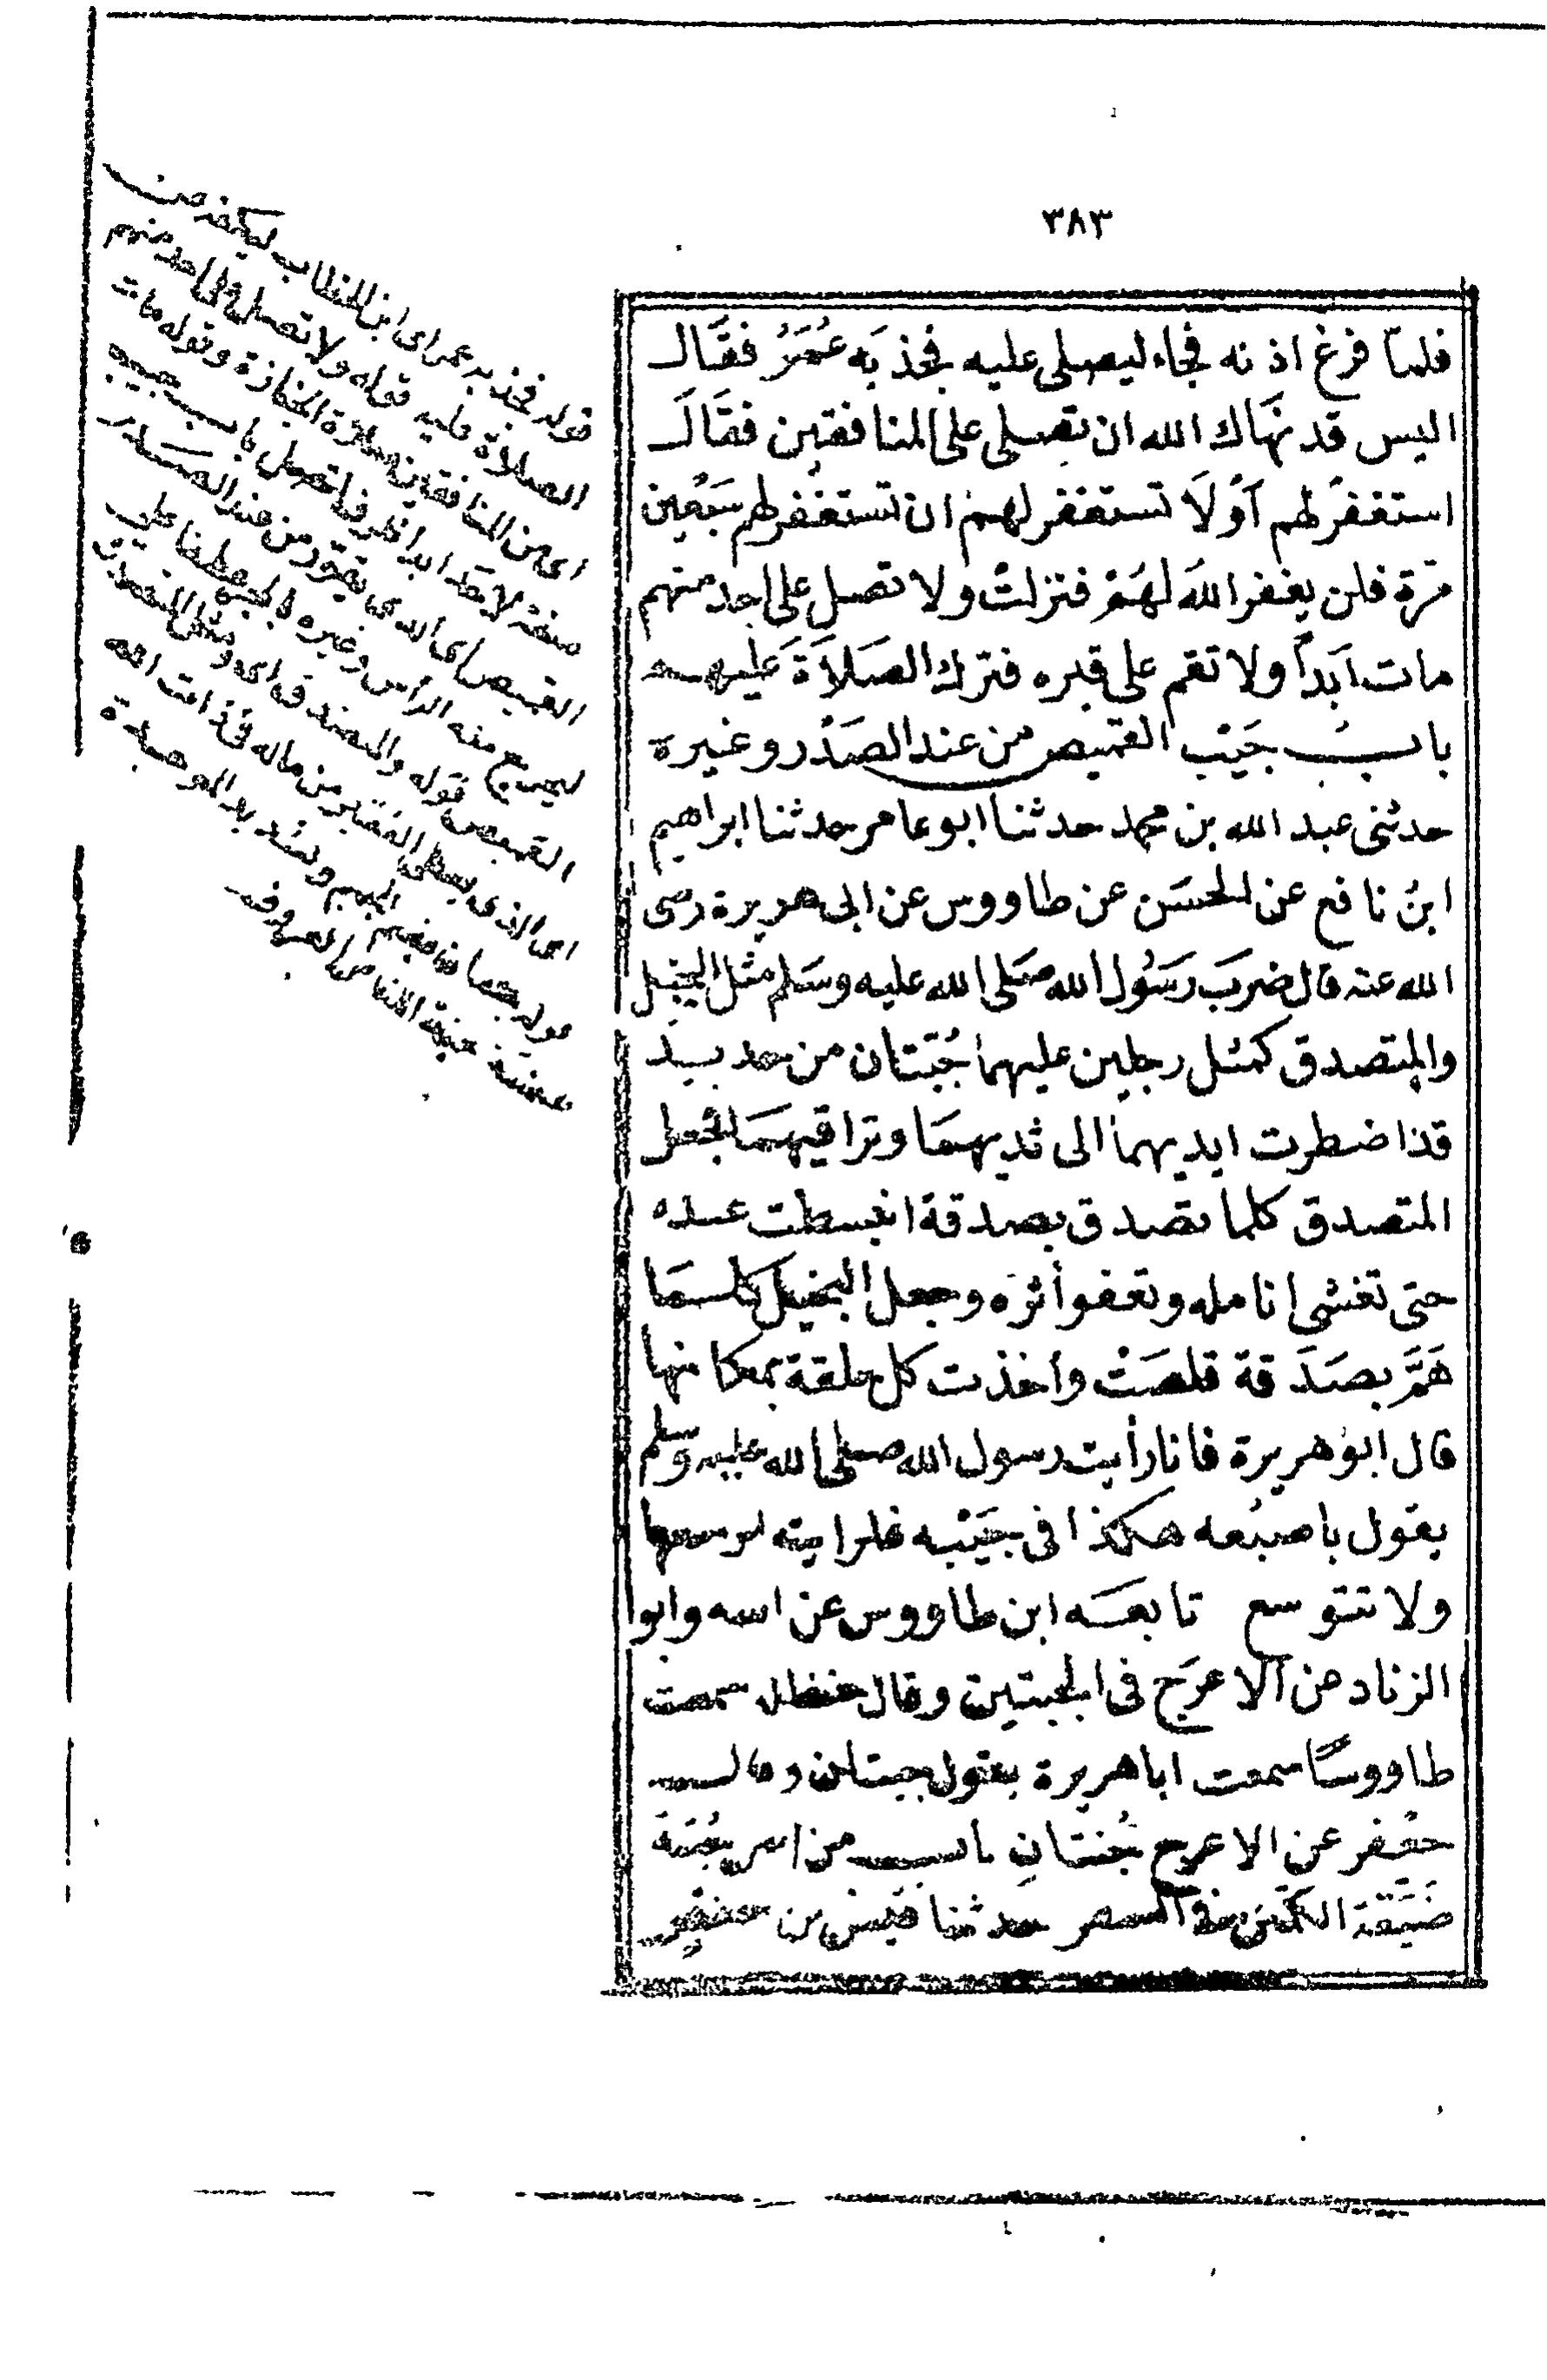 ٣٨٣
فلمّا فرغ اذنه فجاء ليصلى عليه فجذبه عُمَرُ فقَال
اليس قد نهَاك الله ان تصلى على المنافقين فقَال
استغفر لهم اَوْلَا تستغفر لهم ان تستغفر لهم سَبْعين
مَرّة فلن يغفر الله لهَمْ فنزلتْ ولا تصل على احد منهم
مات اَبداً ولا تقم على قبره فترك الصَلاَةَ عَليهم
باب جَيْب القميص من عند الصَدْر وغيره
حدثنى عبد الله بن محمد حدثنا ابو عامر حدثنا ابراهيم
ابنُ نافع عن الحسَن عن طاووس عن ابى هريرة رضى
الله عنه قال ضربَ رَسُول الله صَلى الله عليه وسَلم مثل البخيل
والمتصدق كمثل رجلين عليهما جُبّتان من حديد
قد اضطرت ايديهما الى ثديهمَا وتراقيهمَا فجعل
المتصدق كلما تصدق بصدقة انبسطت عنه
حتى تغشى انامله وتعفو أثره وجعل البخيل كلمَا
هَمَّ بصَدَقة قلصَتْ وأخذت كل حلقة بمكانها
قال ابو هريرة فانا رأيت رسول الله صلى الله عليه وَسلم
يقول باصبُعه هكذا فى جَيْبه فلو رايته يوسعها
ولا تتوسع تابعَه ابن طاووس عن ابيه وابوا
الزناد عن الاعرَج فى الجبتين وقال حنظلة سمعت
طاووسًا سمعت ابا هريرة يقول جبتان وقال
جعْفر عن الاعرج جُنتانِ باب من لبس جُبّةً
ضَيّقة الكمّين فى السفر حدثنا قيس بن حفص
قوله فجذبه عمر اى ابن الخطاب ليكفه عن
الصلاة عليه قوله ولا تصل على احد منهم
اى من المنافقين صلاة الجنازة وقوله مات
صفة لاحد ابدا ظرف لتصل باب جيب
القميص اى الذى يقور من عند الصدر
ليخرج منه الرأس وغيره
القميص قوله والمتصدق اى ومثل المتصدق
اى الذى يعطى الفقير من ماله فى ذات الله